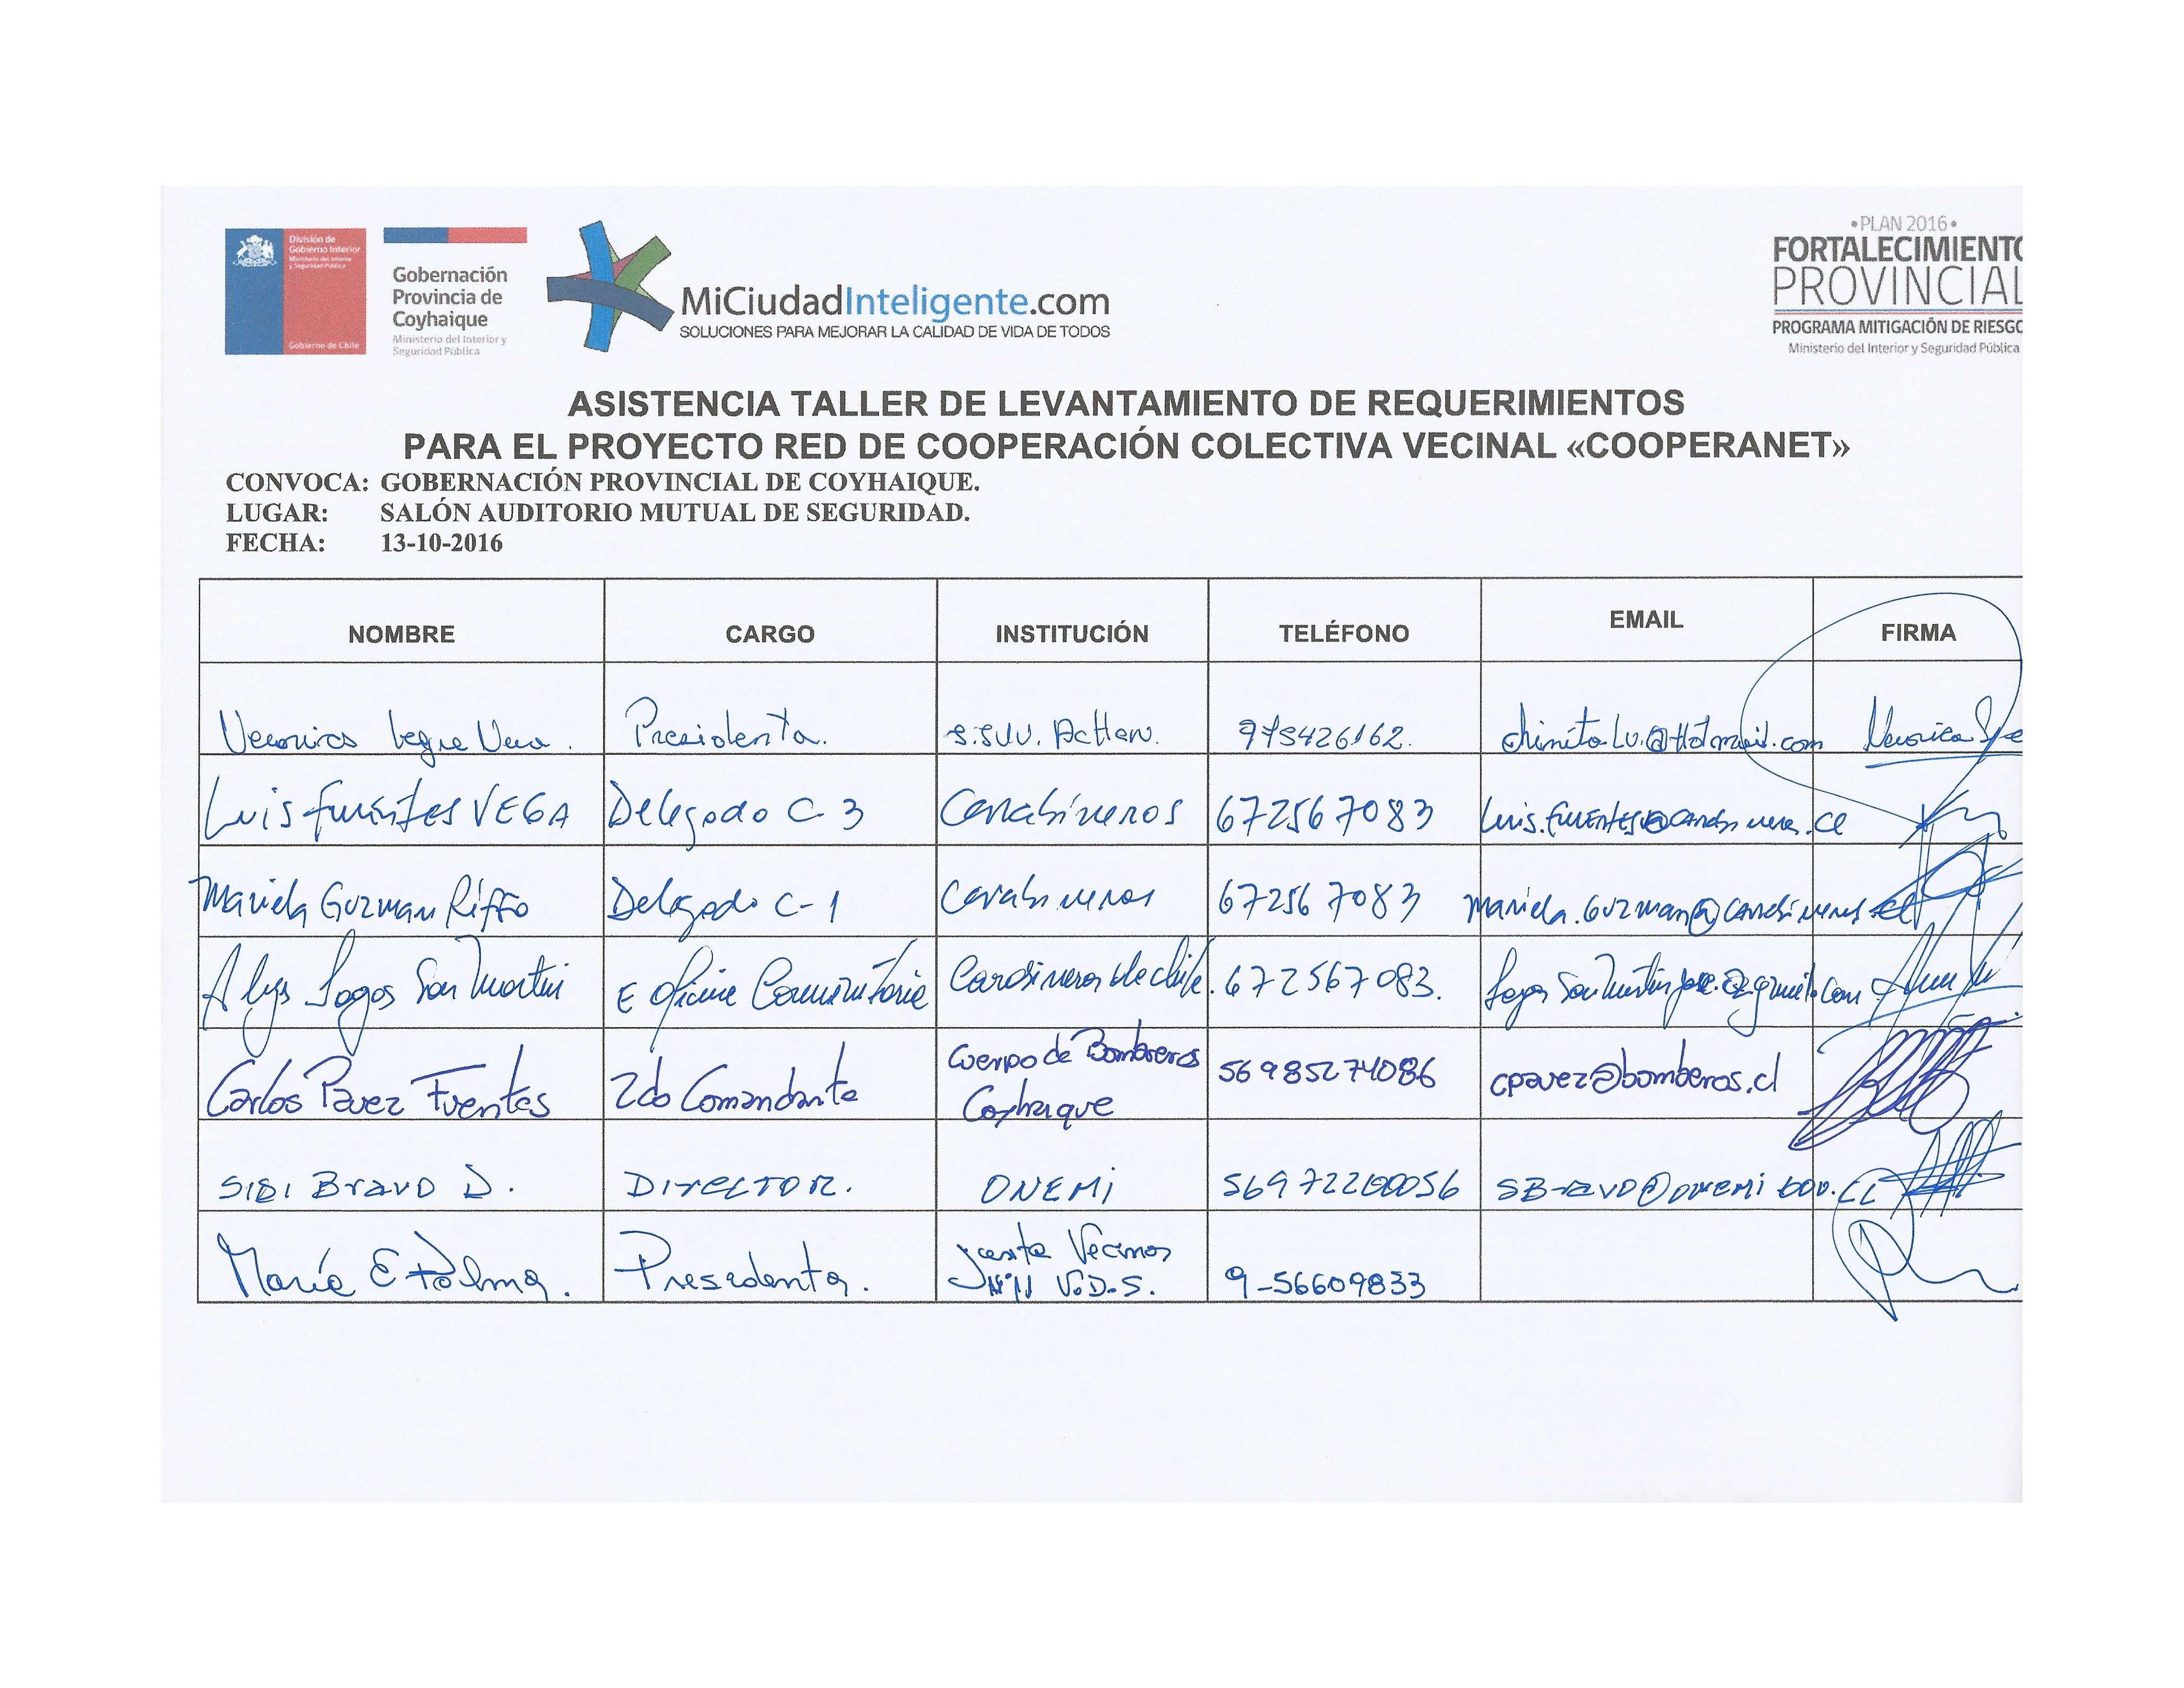 División de
Gobierno Interior
Ministerio del Interior
y Seguridad Pública
Gobierno de Chile
Gobernación
Provincia de
Coyhaique
Ministerio del Interior y
Seguridad Pública
MiCiudadInteligente.com
SOLUCIONES PARA MEJORAR LA CALIDAD DE VIDA DE TODOS
•PLAN 2016•
FORTALECIMIENTO
PROVINCIAL
PROGRAMA MITIGACIÓN DE RIESGO
Ministerio del Interior y Seguridad Pública
ASISTENCIA TALLER DE LEVANTAMIENTO DE REQUERIMIENTOS
PARA EL PROYECTO RED DE COOPERACIÓN COLECTIVA VECINAL «COOPERANET»
CONVOCA: GOBERNACIÓN PROVINCIAL DE COYHAIQUE.
LUGAR: SALÓN AUDITORIO MUTUAL DE SEGURIDAD.
FECHA: 13-10-2016
NOMBRE CARGO INSTITUCIÓN TELÉFONO EMAIL FIRMA
Veronica Vera. Presidenta. 975426162. Veronica
Luis Fuentes VEGA Delegado C-3 Carabineros 672567083
Mariela Guzman Riffo Delegado C-1 Carabineros 672567083 mariela.guzman@carabineros.cl
Lagos San Martin E Oficina Comunitaria Carabineros de chile. 672567083.
Carlos Pavez Fuentes 2do Comandante Cuerpo de Bomberos 56985274086 cpavez@bomberos.cl
Coyhaique
SIDI Bravo D. DIRECTOR. ONEMI 56972200056 SBravo@onemi.gov.CL
María E Palma. Presidenta. Junta Vecinos 9-56609833
Nº11 V.D.S.